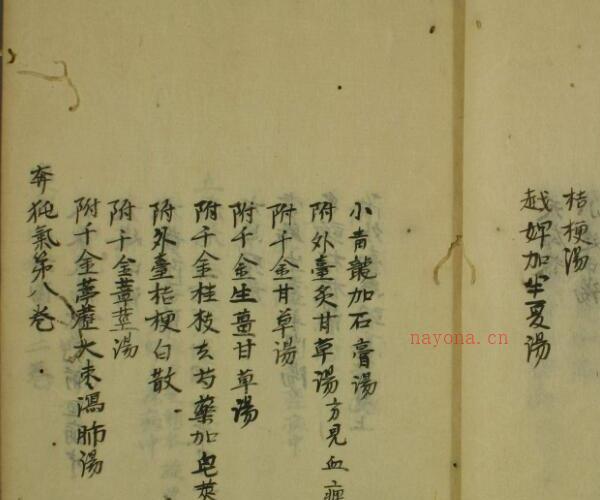 桔梗湯
越婢加半夏湯
小青龍加石膏湯
附外臺炙甘草湯方見血痺
附千金甘草湯
附千金生薑甘草湯
附千金桂枝去芍藥加皂莢
附外臺桔梗白散
附千金葦莖湯
附千金葶藶大枣瀉肺湯
奔㹠氣第八卷
nayona.cn